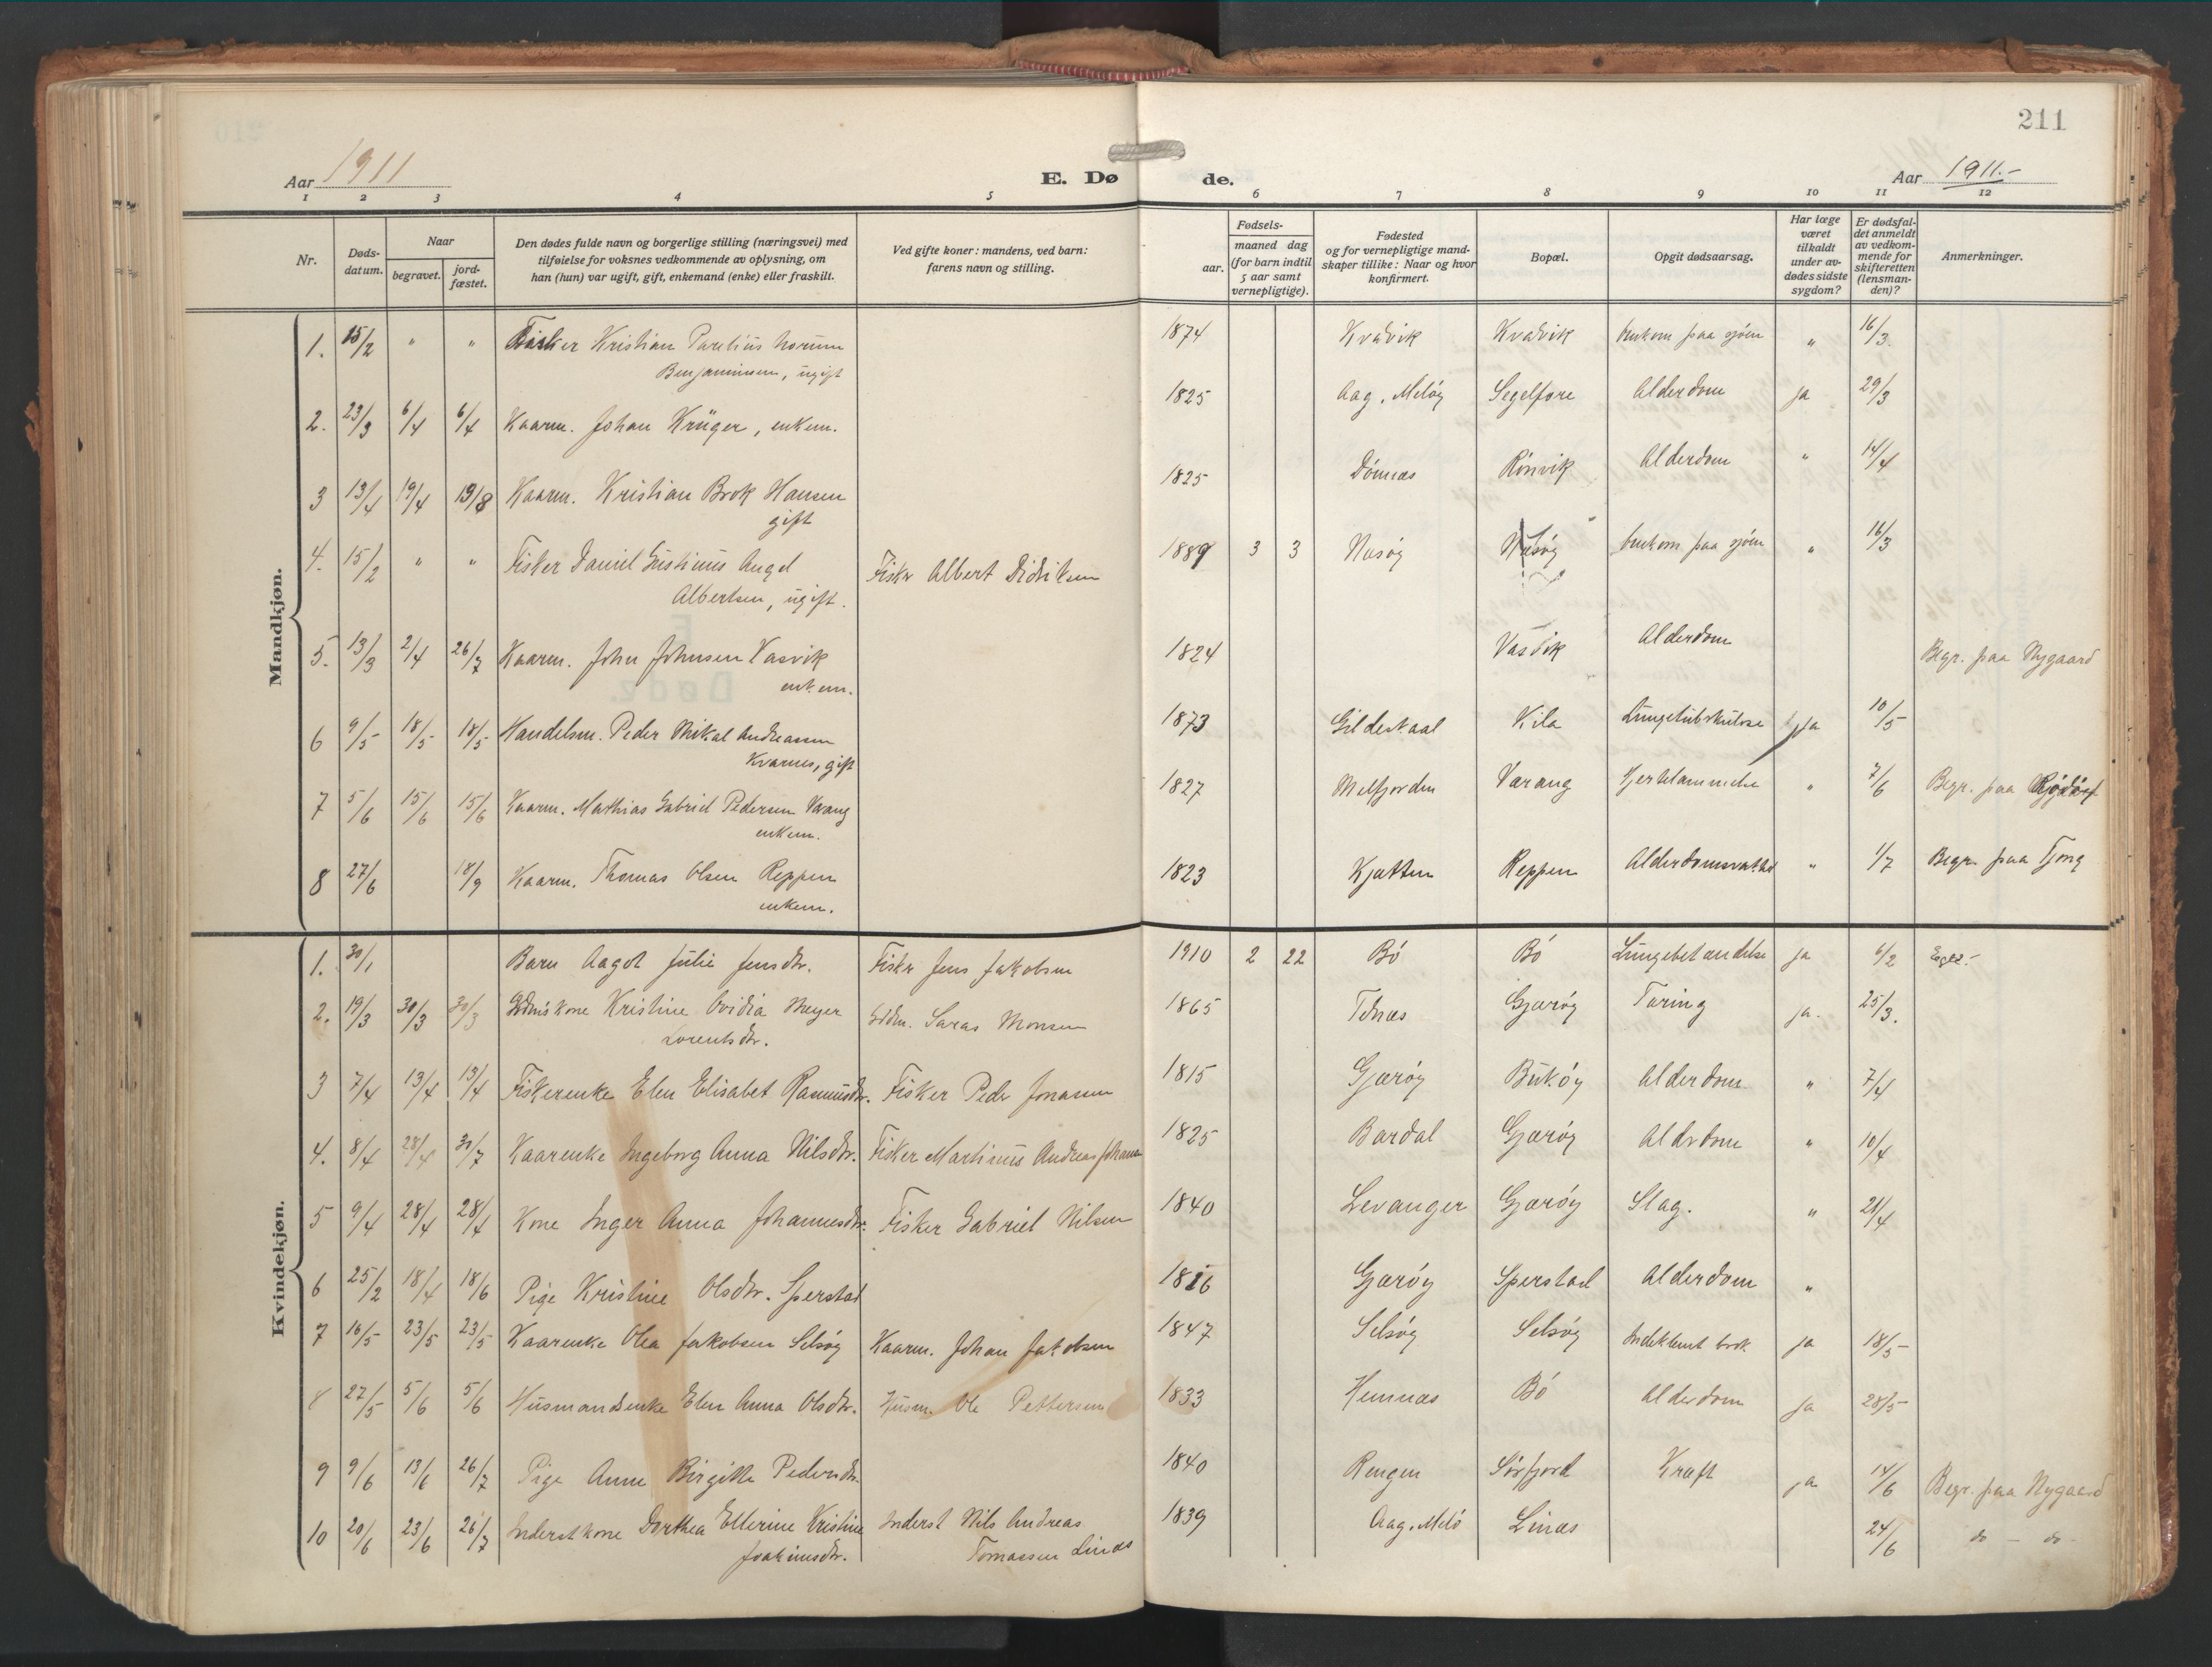 211
Aar 1911
E. Dø
de.
Aar 1911.-
1 2 3 4 5 6 7 8 9 10 11 12
Nr.
Døds-
datum.
Naar
begravet.
jord-
fæstet.
Den dødes fulde navn og borgerlige stilling (næringsvei) med
tilføielse for voksnes vedkommende av oplysning, om
han (hun) var ugift, gift, enkemand (enke) eller fraskilt.
Ved gifte koner: mandens, ved barn:
farens navn og stilling.
Fødsels-
aar.
maaned dag
(for barn indtil
5 aar samt
vernepligtige).
Fødested
og for vernepligtige mand-
skaper tillike: Naar og hvor
konfirmert.
Bopæl.
Opgit dødsaarsag.
Har læge
været
tilkaldt
under av-
dødes sidste
sygdom?
Er dødsfal-
det anmeldt
av vedkom-
mende for
skifteretten
(lensman-
den)?
Anmerkninger.
Mandkjøn.
1. 15/2 " " Fisker Kristian Parelius Norum 1874 Kvavik Kvavik Omkom paa sjöen " 16/3.
Benjaminsen, ugift
2. 23/3 6/4 6/4 Kaarm. Johan Krüger, enkem. 1825 Aag, Melöy Segelfore Alderdom ja 29/3
3 13/4 19/4 19/8 Kaarm. Kristian Brok Hansen 1825 Dönnæs Rönvik Alderdom " 14/4
gift
4. 15/2 " " Fisker Daniel Justinus Angel Fisker Albert Didriksen 1889 3 3 Næsöy Næsöy Omkom paa sjöen " 16/3
Albertsen, ugift.
5. 13/3 2/4 26/7 Kaarm. John Johnsen Vasvik 1824 Vasvik Alderdom Begr. paa Nygaard
enkem.
6 9/5 18/5 18/5 Handelsm. Peder Mikal Andreassen 1873 Gildeskaal Kila Lungetuberkulose ja 10/5
Kvarnes, gift
7 5/6 15/6 15/6 Kaarm. Mathias Gabriel Pedersen Varang 1827 Melfjorden Varang Hjertelammelse " 7/6 Begr. paa Rödöy
enkem.
8 27/6 18/9 Kaarm. Thomas Olsen Reppen 1823 Kjætten Reppen " 1/7 Begr. paa Tjong
enkem.
Kvindekjøn.
1. 30/1 Barn Aagot Julie Jensdtr. Fisker Jens Jakobsen 1910 2 22 Bö Bö Lungebetændelse ja 6/2
2. 19/3 30/3 30/3 Kristine Ovidia Meyer Saras Monsen 1865 Tenæs Gjæröy Tæring ja. 25/3.
Lorentsdtr.
3 7/4 13/4 13/4 Fiskerenke Elen Elisabet Rasmusdtr. Fisker Peder Jonassen 1815 Gjæröy Buköy Alderdom " 7/4
4. 8/4 28/4 30/7 Kaarenke Ingeborg Anna Nilsdtr. Fisker Martinus Andreas Johansen 1825 Bardal Gjæröy Alderdom " 10/4
5 9/4 28/4 28/4 Kone Inger Anna Johannesdtr. Fisker Gabriel Nilsen 1840 Levanger Gjæröy Slag. " 21/4
6 25/2 18/4 18/6 Pige Kristine Olsdtr. Sperstad 1826 Gjæröy Sperstad Alderdom "
7 16/5 23/5 23/5 Kaarenke Olea Jakobsen Selsöy Kaarm. Johan Jakobsen 1847 Selsöy Selsöy Indeklemt brok ja 18/5
8 27/5 5/6 5/6 Husmandsenke Elen Anna Olsdtr. Husm. Ole Pettersen 1833 Hemnæs Bö Alderdom ja 28/5
9 9/6 13/6 26/7 Pige Anne Birgitte Pedersdtr. 1840 Rengen Sörfjord Kræft ja 14/6 Begr. paa Nygaard
10 20/6 23/6 26/7 Inderstkone Dorthea Ellerine Kristine Inderst Nils Andreas 1839 Aag, Melö Linæs 24/6 do - do-
Joakimsdtr. Tomassen Linæs